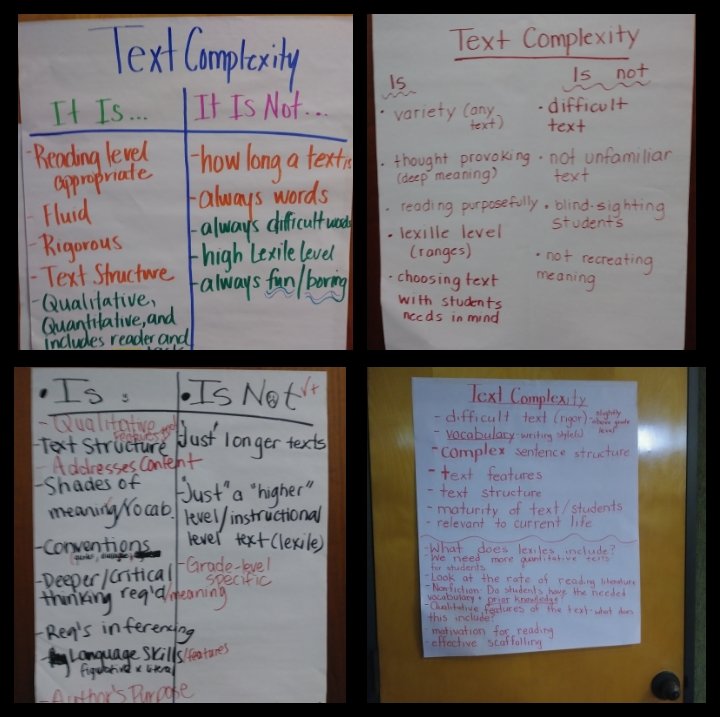 Text Complexity
It Is...
-Reading level
appropriate
- Fluid
- Rigorous
- Text Structure
-Qualitative,
Quantitative, and
includes reader and
It Is Not...
-how long a text is
-always words
-always difficult words
-high Lexile level
-always fun/boring
Text Complexity
Is
• variety (any
text)
• thought provoking
(deep meaning)
• reading purposefully
• lexille level
(ranges)
• choosing text
with students
needs in mind
Is not
• difficult
text
• not unfamiliar
text
• blind-sighting
students
• not recreating
meaning
• Is :
- Qualitative
features
-Text Structure
- Addresses Content
-Shades of
meaning/Vocab.
-Conventions
-Deeper/Critical
thinking req'd/meaning
-Req's inferencing
-Language Skills/features
figurative x literal
-Author's Purpose
• Is Not
"Just" longer texts
"Just" a "higher"
level/instructional
level text (lexile)
-Grade-level
specific
Text Complexity
- difficult text (rigor)-slightly
above grade
level
- vocabulary-writing style(s)
-complex sentence structure
-text features
- text structure
- maturity of text/students
- relevant to current life
-What does lexiles include?
-We need more quantitative texts
for students
-Look at the rate of reading literature
-Nonfiction: Do students have the needed
vocabulary + prior knowledge?
-Qualitative features of the text-what does
this include?
-motivation for reading
-effective scaffolling